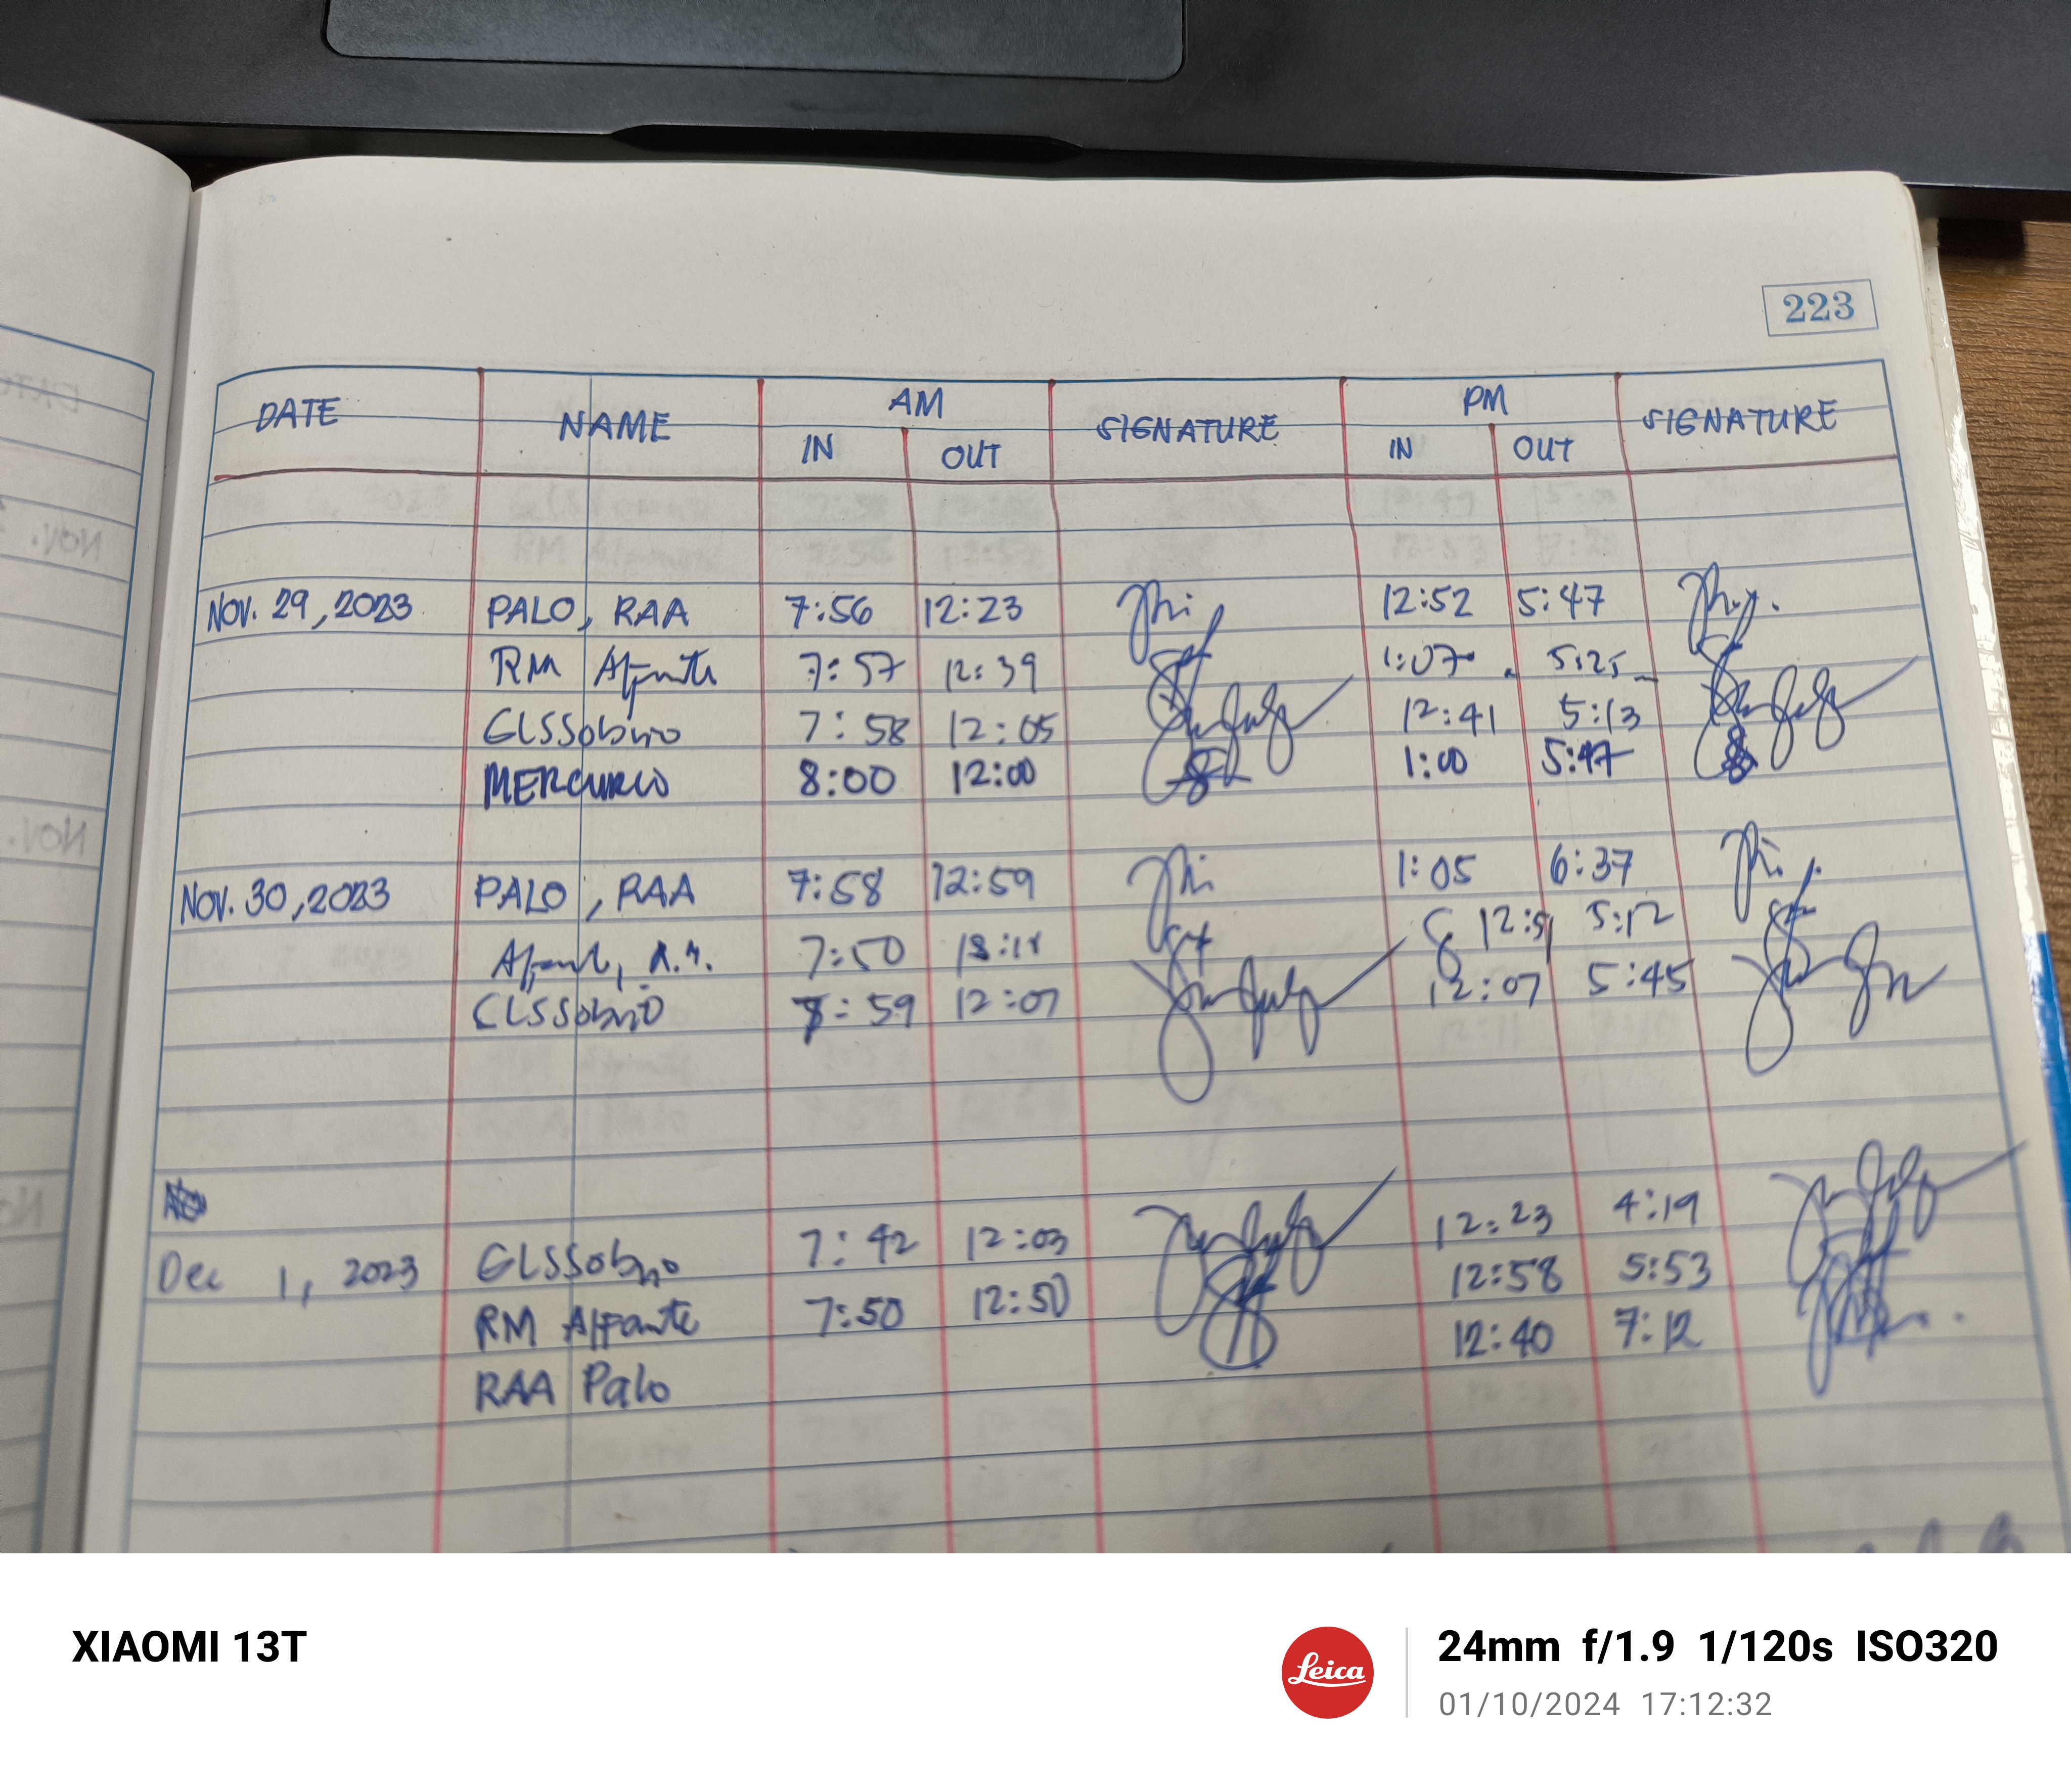 223
DATE NAME AM SIGNATURE PM SIGNATURE
IN OUT IN OUT
NOV. 29, 2023 PALO, RAA 7:56 12:23 12:52 5:47
RM 7:57 12:39 1:07 5:25
GLSSobrio 7:58 12:05 12:41 5:13
MERCURIO 8:00 12:00 1:00 5:47
NOV. 30, 2023 PALO, RAA 7:58 12:59 1:05 6:37
7:50 5:12
GLSSobrio 7:59 12:07 12:07 5:45
Dec 1, 2023 GLSSobrio 7:42 12:03 12:23 4:19
RM Alpante 7:50 12:50 12:58 5:53
RAA Palo 12:40 7:12
NOV.
NOV.
XIAOMI 13T
Leica
24mm f/1.9 1/120s ISO320
01/10/2024 17:12:32